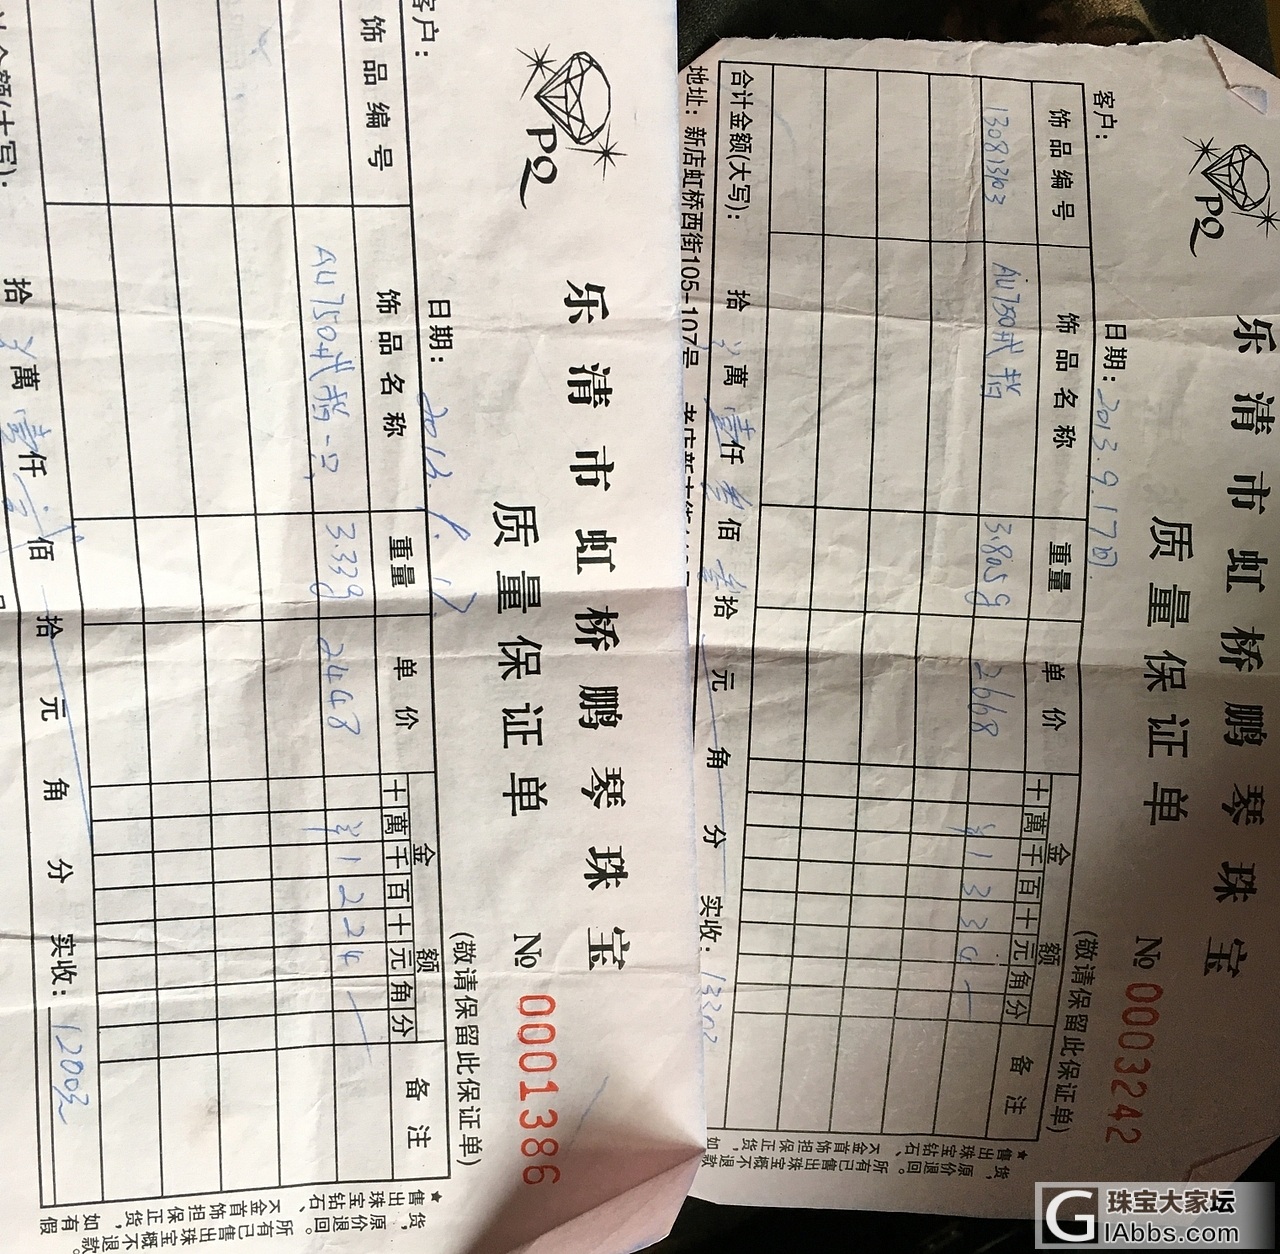 PQ
乐清市虹桥鹏琴珠宝
质量保证单
№ 0001386
客户：
日期：
(敬请保留此保证单)
饰品编号 饰品名称 重量 单价 金额 备注
十 萬 千 百 十 元 角 分
AU750戒指一只 3.33g 2448 ¥1224
金额(大写)： 拾 萬 壹仟 佰 拾 元 角 分 实收：1200元
★售出珠宝钻石、
货，原价退回。所有已售出珠宝概不退款
PQ
乐清市虹桥鹏琴珠宝
质量保证单
№ 0003242
客户：
日期：2013.9.17日
(敬请保留此保证单)
饰品编号 饰品名称 重量 单价 金额 备注
十 萬 千 百 十 元 角 分
130813103 AU750戒指 3.805g 2668 ¥133
合计金额(大写)： 拾 萬 壹仟 叁佰 叁拾 元 角 分 实收：
地址：新店虹桥西街105-107号
★售出珠宝钻石、
货，原价退回。所有已售出珠宝概不退款
G 珠宝大家坛
GIAbbs.com